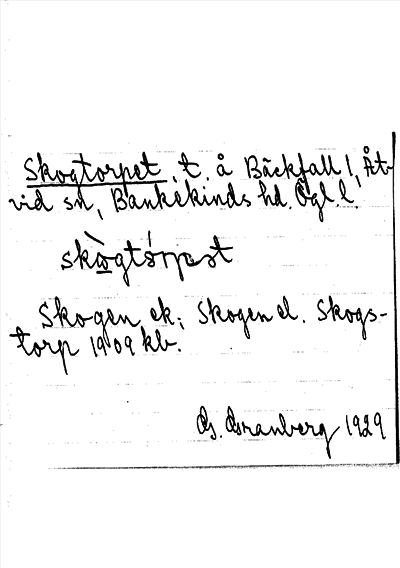 Skogtorpet, t. å Bäckfall 1, Åt-
vid sn, Bankekinds hd. Ögl. l.
skògtórpət
Skogen ek; Skogen el. Skogs-
torp 1909 kb.
G. Granberg 1929